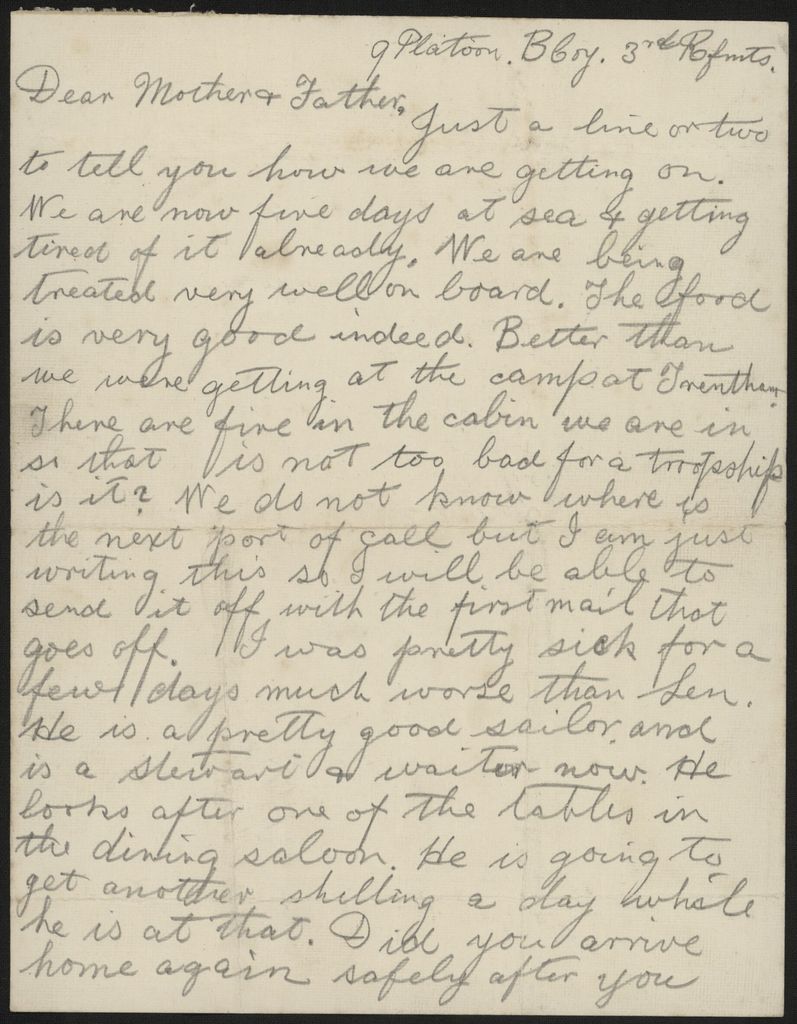 9 Platoon. B Coy. 3rd Rfmts.
Dear Mother & Father,
Just a line or two
to tell you how we are getting on.
We are now five days at sea & getting
tired of it already. We are being
treated very well on board. The food
is very good indeed. Better than
we were getting at the camp at Trentham.
There are five in the cabin we are in
so that is not too bad for a troopship
is it? We do not know where is
the next port of call but I am just
writing this so I will be able to
send it off with the first mail that
goes off. I was pretty sick for a
few days much worse than Len.
He is a pretty good sailor and
is a stewart & waiter now. He
looks after one of the tables in
the dining saloon. He is going to
get another shilling a day while
he is at that. Did you arrive
home again safely after you